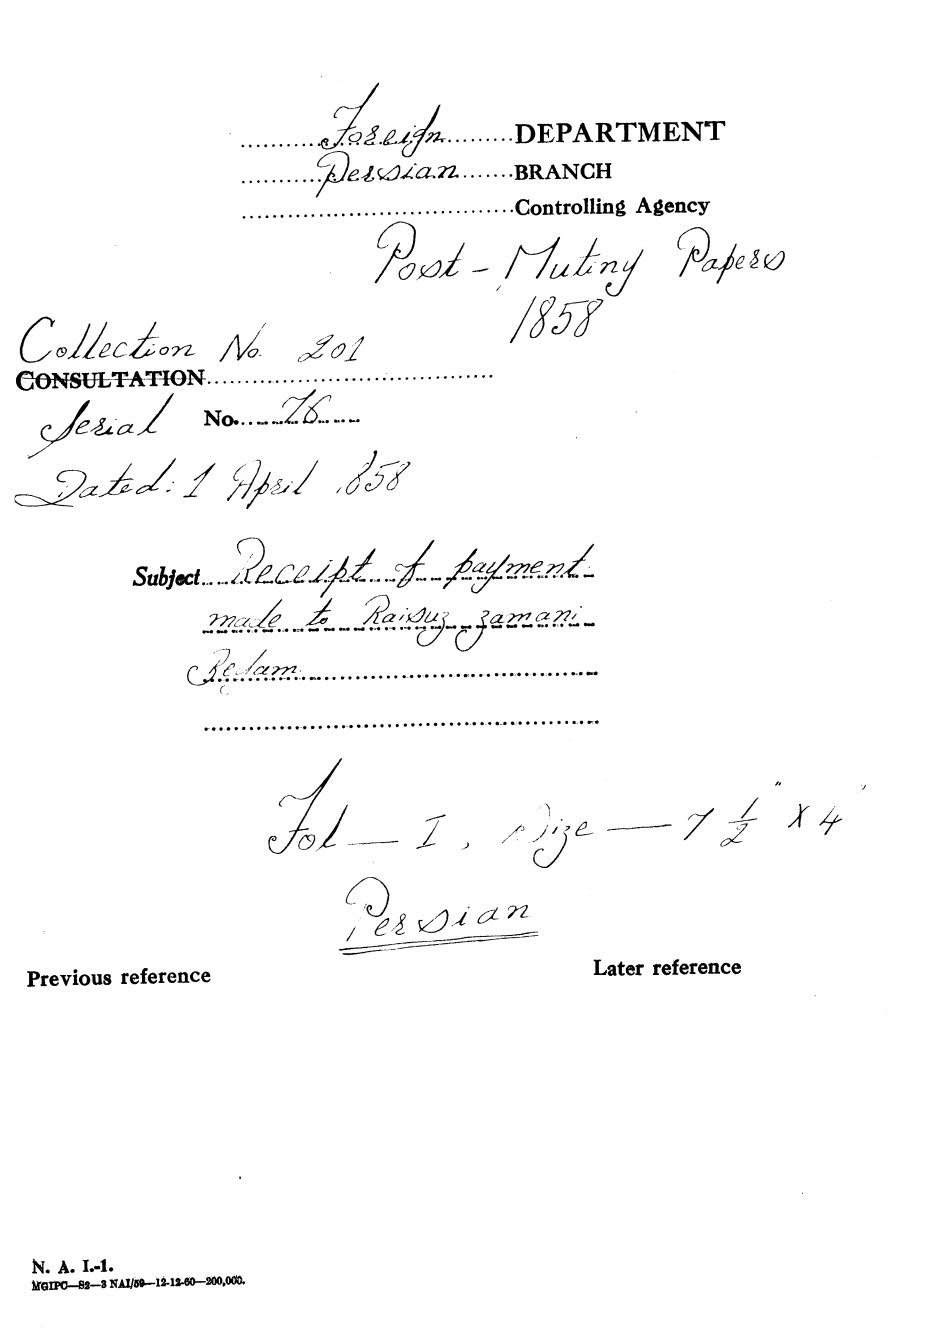 Foreign DEPARTMENT
Persian BRANCH
Controlling Agency
Post - Mutiny Papers
1858
Collection No. 201
CONSULTATION
Serial No. 76
Dated: 1 April 1858
Subject Receipt of payment
made to Raisuz zamani
Begam
Fol — I, Size — 7 1/2" X 4"
Persian
Previous reference
Later reference
N. A. I.-1.
MGIPC—S2—3 NAI/59—12-12-60—200,000.